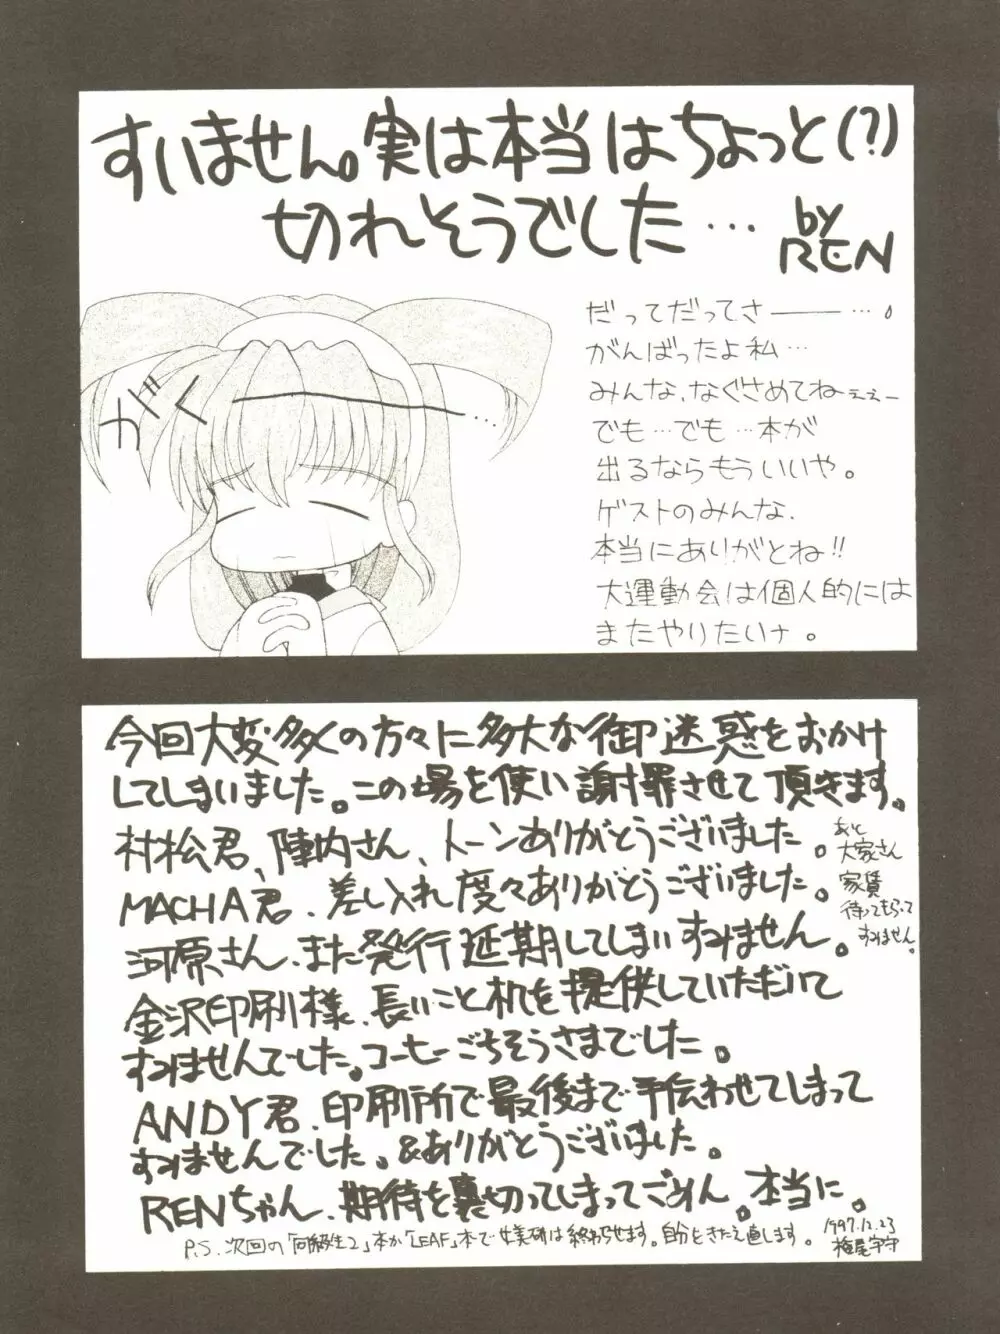 すいません。実は本当はちょっと(?)
切れそうでした… by REN
がくーーー…
だってだってさ―――…。
がんばったよ私…
みんな、なぐさめてねぇぇー
でも…でも…本が
出るならもういいや。
ゲストのみんな、
本当にありがとね!!
大運動会は個人的には
またやりたいナ。
今回大変多くの方々に多大な御迷惑をおかけ
してしまいました。この場を使い謝罪させて頂きます。
村松君、陣内さん、トーンありがとうございました。
MACHA君、差し入れ度々ありがとうございました。
あと
大家さん
家賃
待ってもらって
すみません。
河原さん、また発行延期してしまいすみません。
金沢印刷様、長いこと机を提供していただいて
すみませんでした。コーヒーごちそうさまでした。
ANDY君、印刷所で最後まで手伝わせてしまって
すみませんでした。&ありがとうございました。
RENちゃん、期待を裏切ってしまってごめん。本当に。
P.S. 次回の「同級生2」本か「LEAF」本で女美研は終わらせます。自分をきたえ直します。
1997.12.23